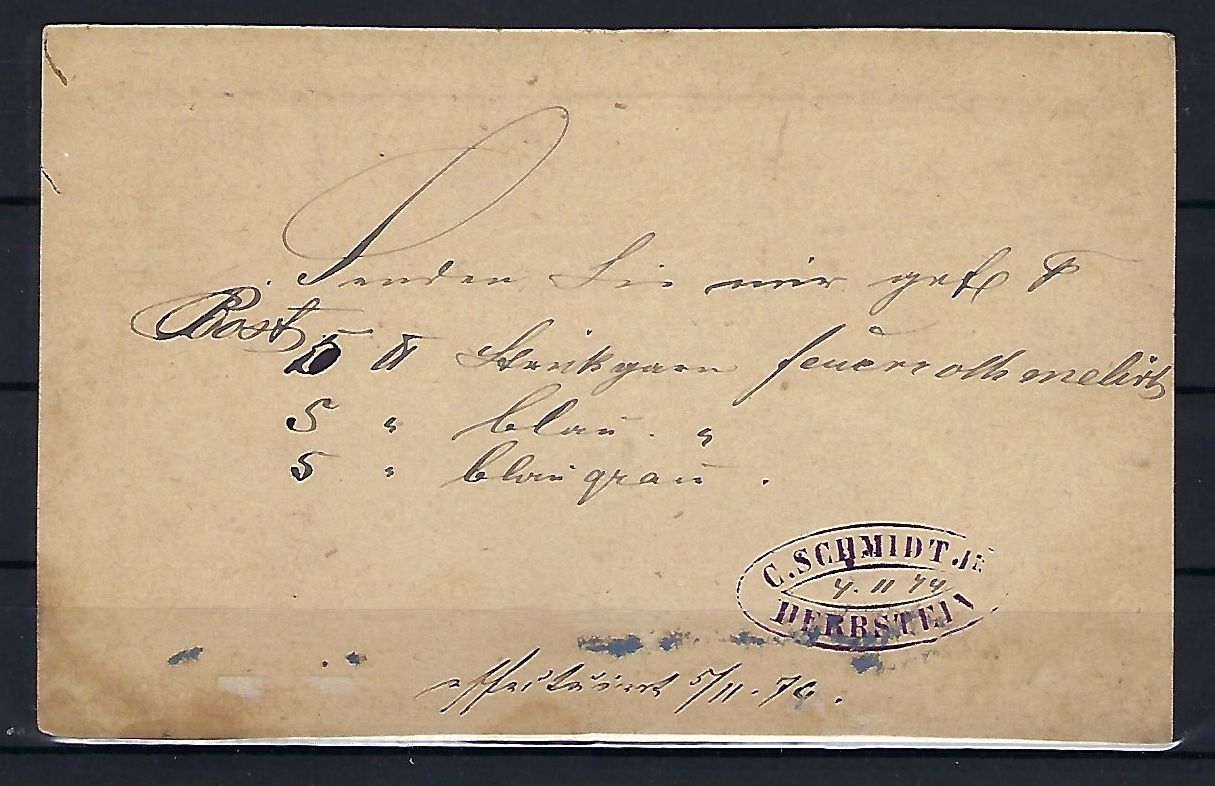 Senden Sie mir gefl p
Post
5 ℔ Strickgarn feuerroth melirt
5 " blau "
5 " blaugrau .
C. SCHMIDT JR
4. 11 74
HERBSTEIN
effectuirt 5/11. 74.